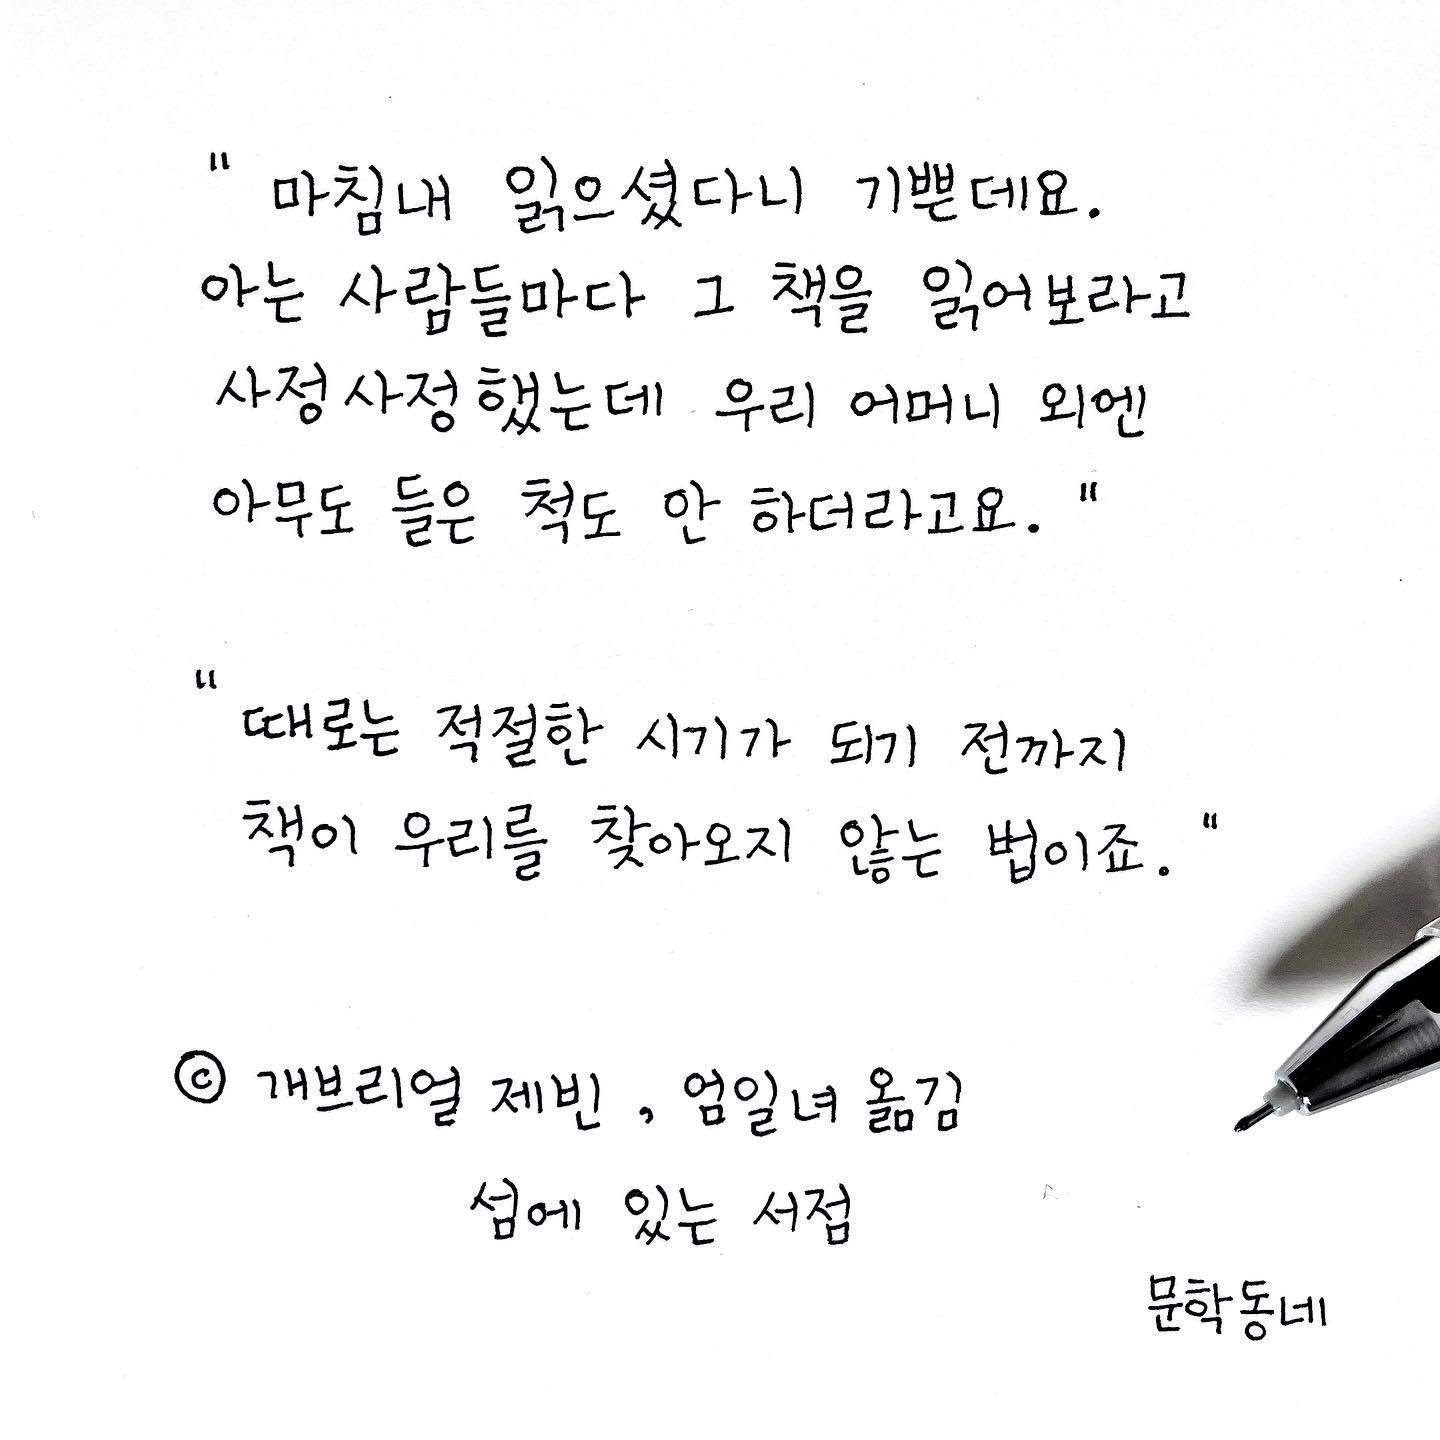 " 마침내 읽으셨다니 기쁜데요.
아는 사람들마다 그 책을 읽어보라고
사정사정했는데 우리 어머니 외엔
아무도 들은 척도 안 하더라고요. "
" 때로는 적절한 시기가 되기 전까지
책이 우리를 찾아오지 않는 법이죠. "
© 개브리얼 제빈, 엄일녀 옮김
섬에 있는 서점
문학동네